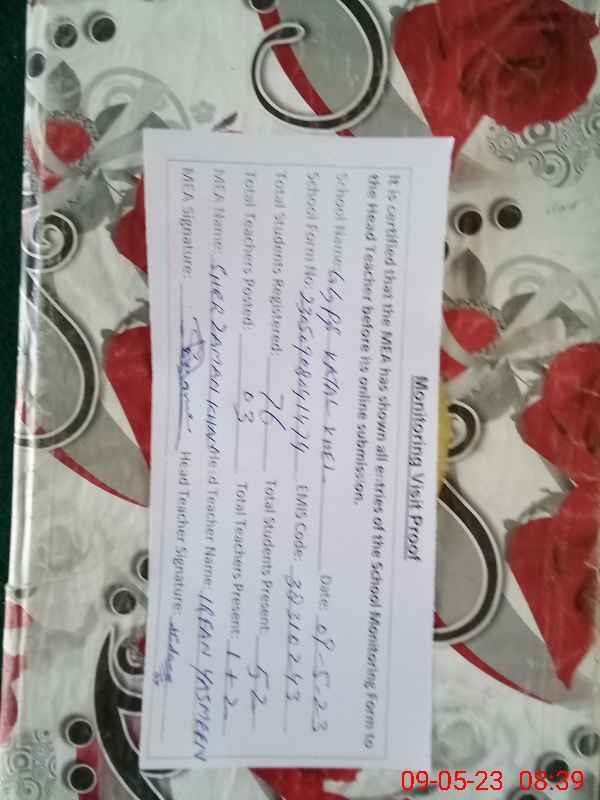 Monitoring Visit Proof
It is certified that the MEA has shown all entries of the School Monitoring Form to
the Head Teacher before its online submission.
School Name: GGPS KATAL KHEL Date: 09-5-23
School Form No: EMIS Code: 38310243
Total Students Registered: 76 Total Students Present: 52
Total Teachers Posted: 03 Total Teachers Present: 1+2
MEA Name: SHER ZAMAN KHAN Head Teacher Name: IRFAN YASMEEN
MEA Signature: Head Teacher Signature:
09-05-23 08:39